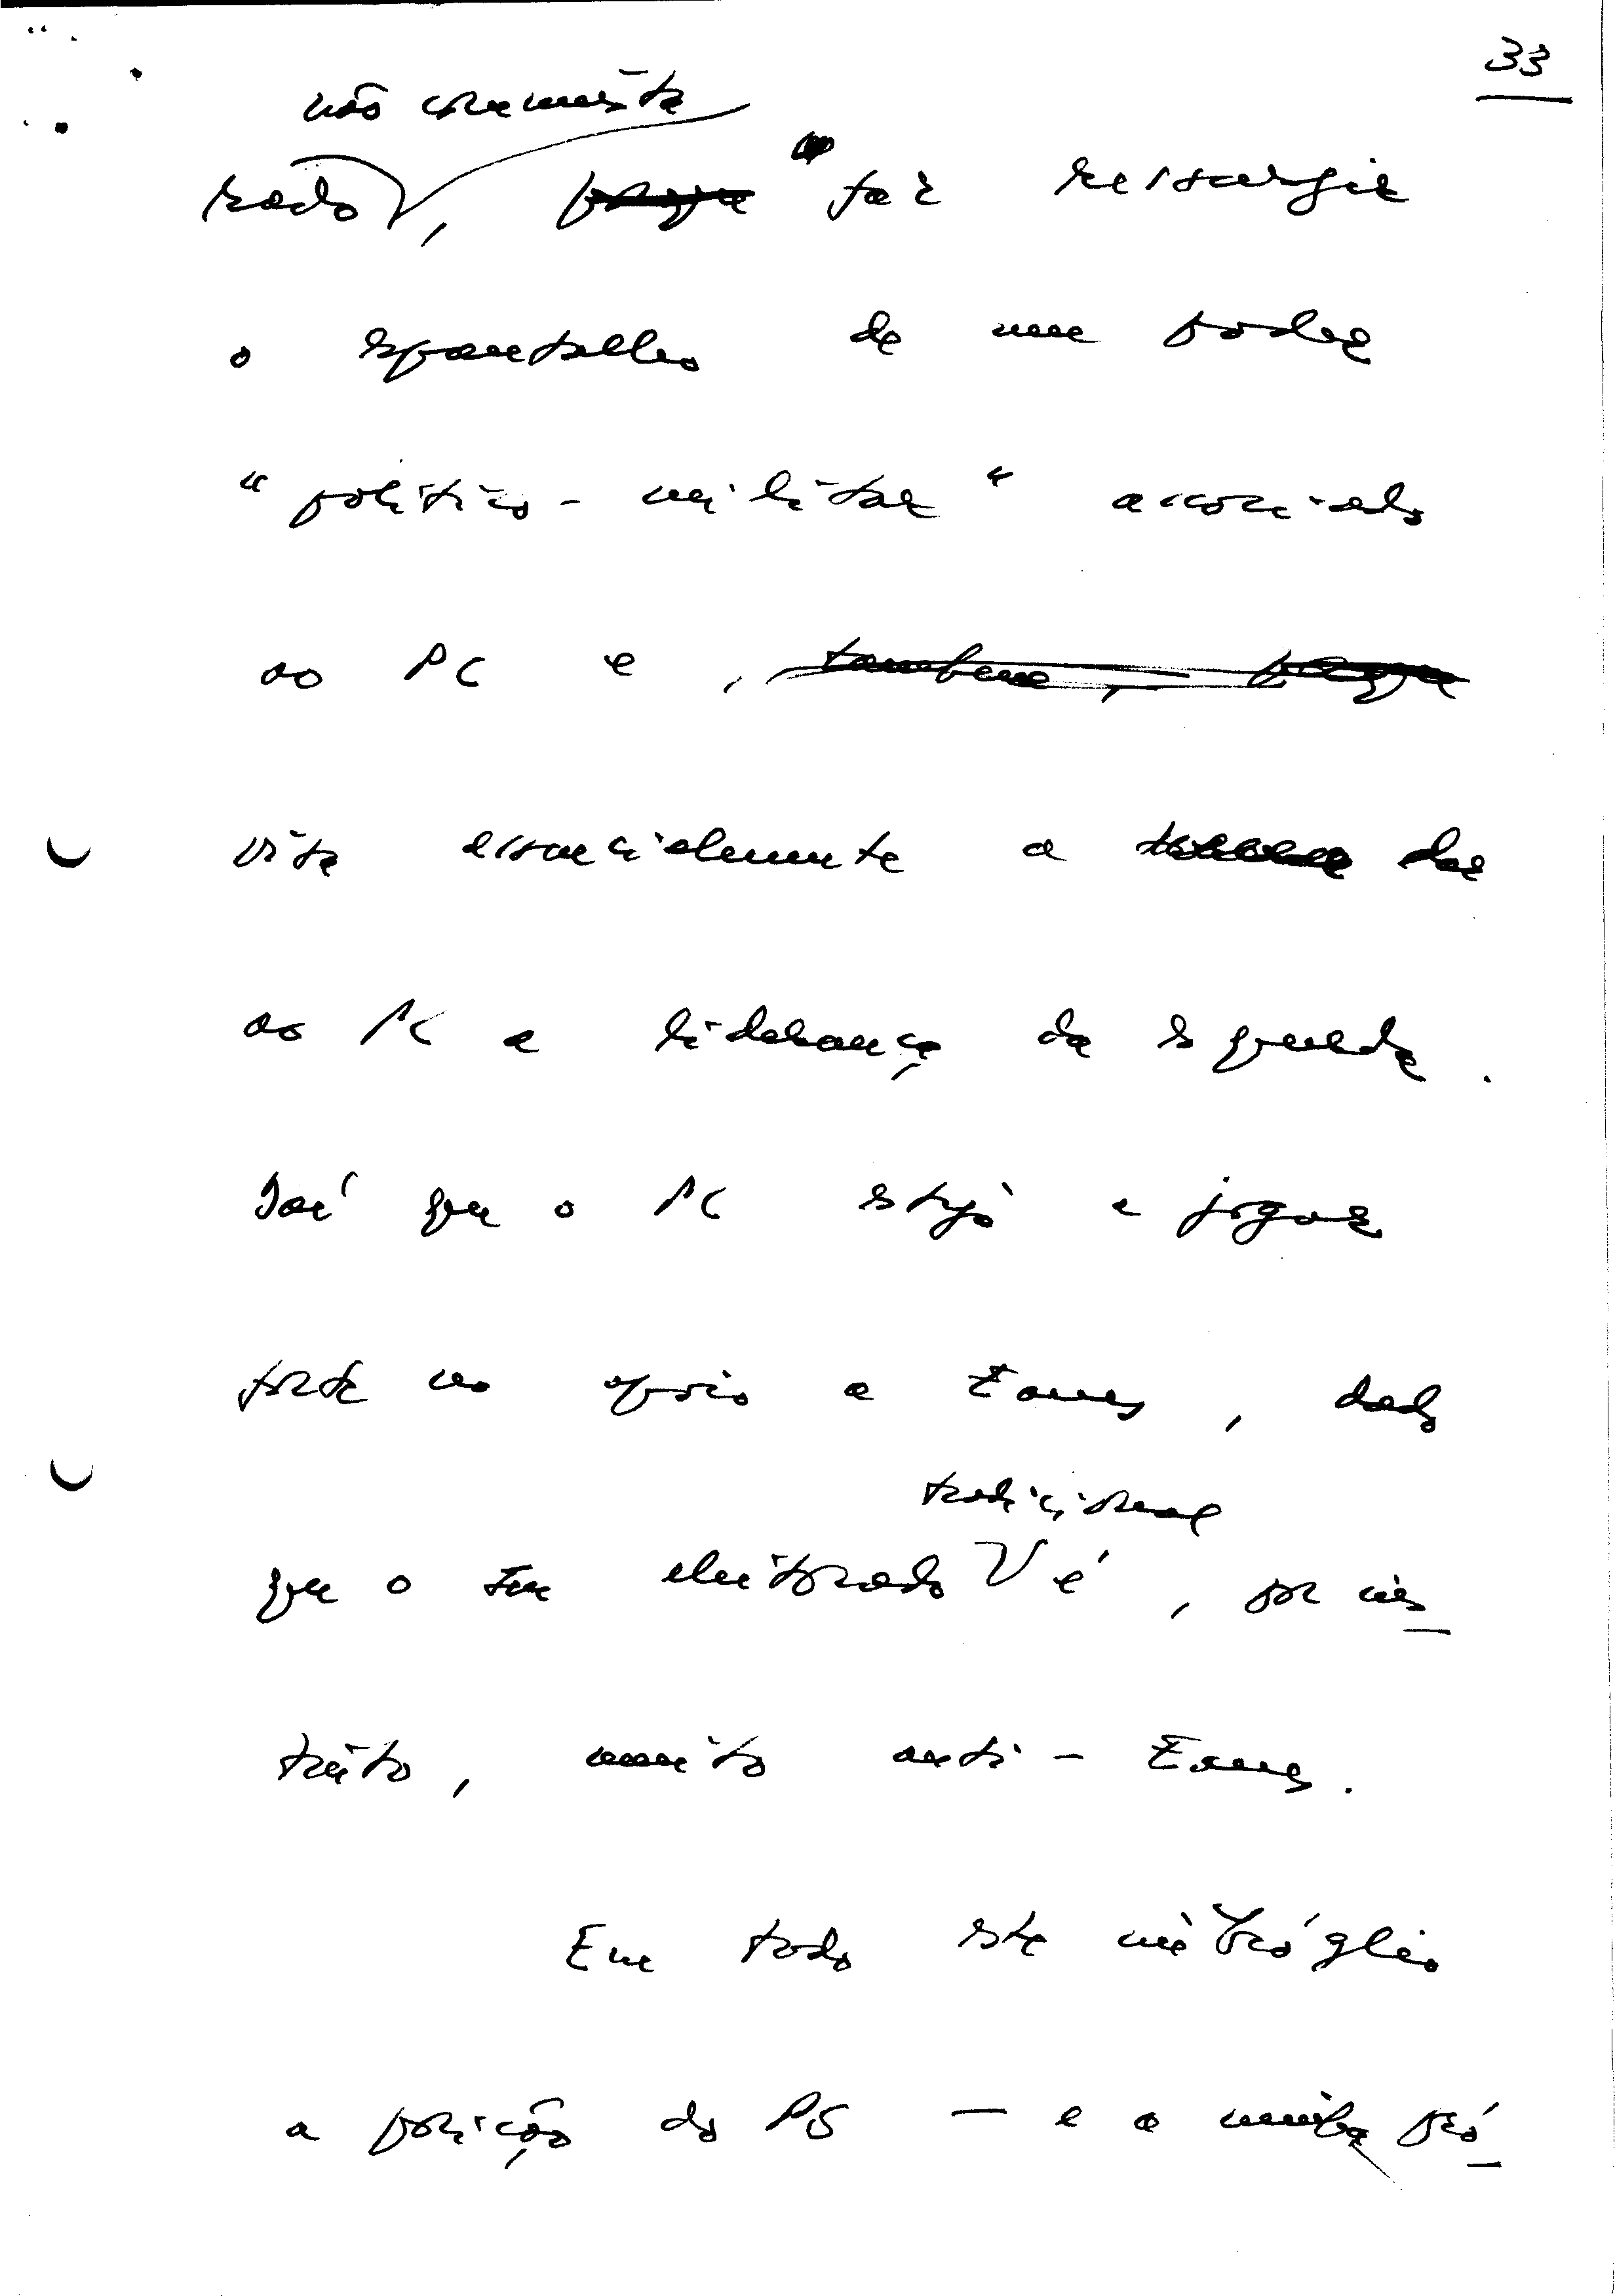 33
não comunista
rado, faz ressurgir
o espantalho de um poder
"político-militar" associado
ao PC e, também,
visa essencialmente a dar
ao PC a liderança da esquerda.
Daí que o PC esteja a jogar
forte no apoio a Eanes, dado
tradicional
que o seu eleitorado é, por ins-
tinto, muito anti-Eanes.
Em todo este imbróglio
a posição do PS — e a minha pró-